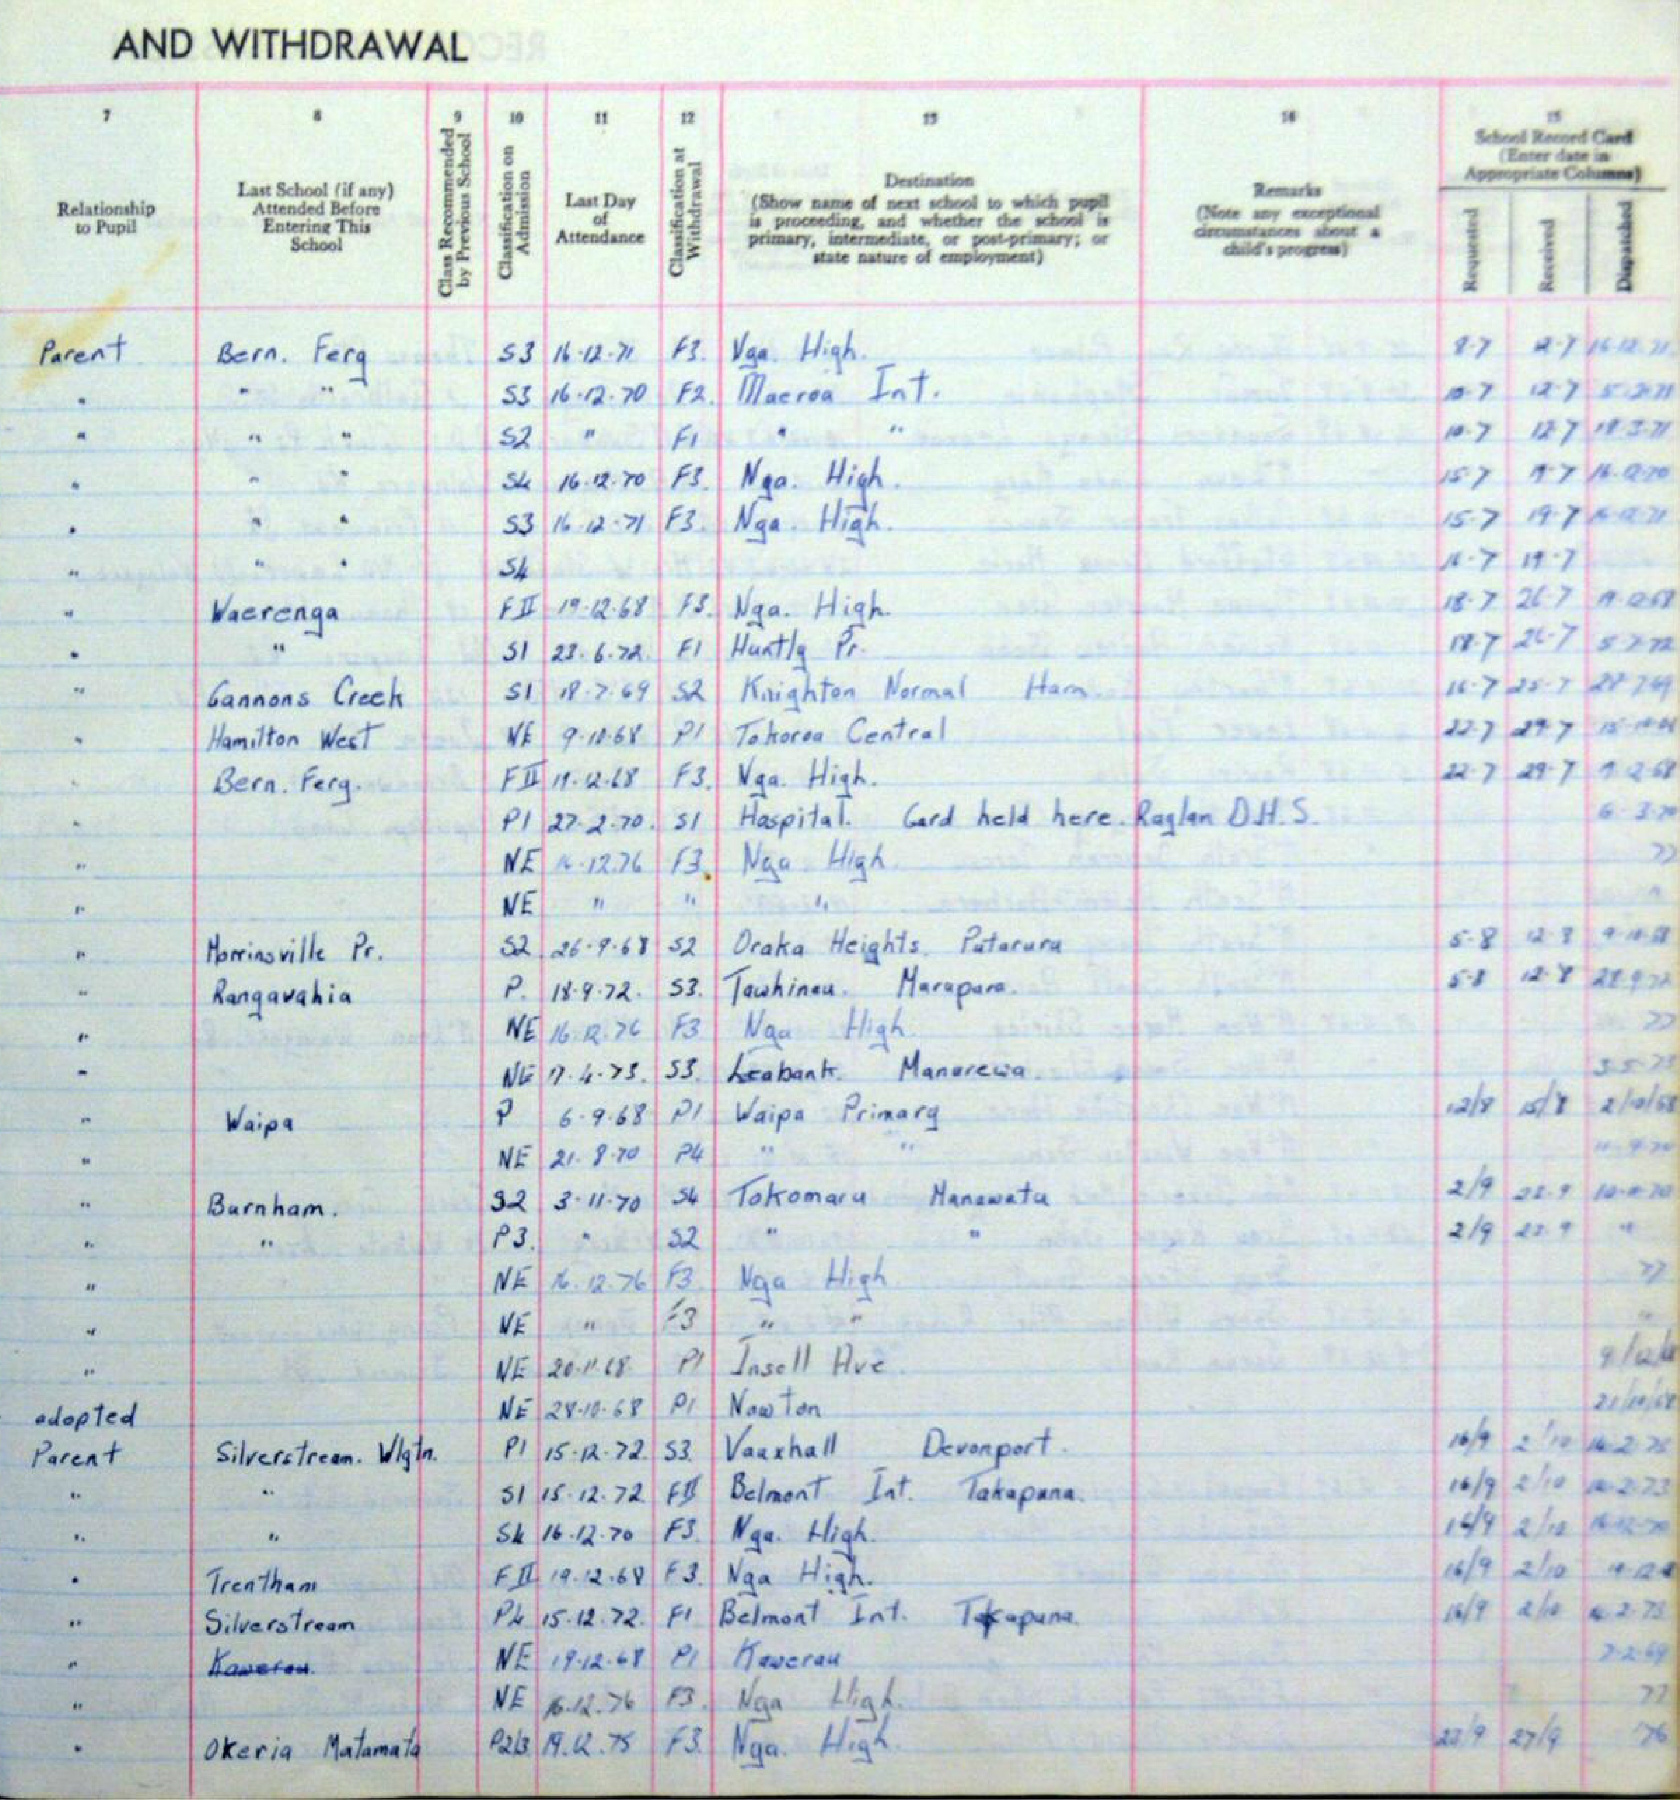 AND WITHDRAWAL
7 8 9 10 11 12 13 14 15
Relationship to Pupil
Last School (if any) Attended Before Entering This School
Class Recommended by Previous School
Classification on Admission
Last Day of Attendance
Classification at Withdrawal
Destination
(Show name of next school to which pupil is proceeding, and whether the school is primary, intermediate, or post-primary; or state nature of employment)
Remarks
(Note any exceptional circumstances about a child's progress)
School Record Card (Enter date in Appropriate Columns)
Requested Received Dispatched
Parent Bern. Ferg S3 16-12-71 F3. Nga. High. 8-7 12-7 16-12-71
" " " S3 16-12-70 F2. Maeroa Int. 10-7 12-7 5-3-71
" " " S2 " F1 " " 10-7 12-7 18-3-71
" " " S4 16-12-70 F3. Nga. High. 15-7 19-7 16-12-70
" " " S3 16-12-71 F3. Nga. High. 15-7 19-7 16-12-71
" " " S4 16-7 19-7
" Waerenga FII 19-12-68 F3. Nga. High. 18-7 26-7 19-12-68
" " S1 23-6-72. F1 Huntly Pr. 18-7 26-7 5-7-72
" Cannons Creek S1 18-7-69 S2 Knighton Normal Ham. 16-7 25-7 28-7-69
" Hamilton West NE 9-10-68 P1 Tokoroa Central 22-7 29-7
" Bern. Ferg. FII 19-12-68 F3. Nga. High. 22-7 29-7 19-12-68
" P1 27-2-70. S1 Hospital. Card held here. Raglan D.H.S. 6-3-70
" NE 16-12-76 F3. Nga High. 77
" NE " " "
" Morrinsville Pr. S2 26-9-68 S2 Oraka Heights. Putaruru 5-8 12-8 9-10-68
" Rangawahia P. 18-9-72. S3. Tawhinau. Marapara. 5-8 12-8 28-9-72
" NE 16.12.76 F3 Nga High. 77
" NE 17-4-73. S3. Leabank. Manurewa. 3-5-73
" Waipa P 6-9-68 P1 Waipa Primary 12/8 15/8 2/10/68
" NE 21-8-70 P4 " " 11-9-70
" Burnham. S2 3-11-70 S4 Tokomaru Manawatu 2/9 23-9 10-11-70
" " P3. " S2 " " 2/9 23-9 "
" NE 16.12.76 F3 Nga High 77
" NE " F3 " " "
" NE 20-11-68 P1 Insoll Ave 9/12/68
adopted NE 28-10-68 P1 Nawton 21/11/68
Parent Silverstream. Wlgtn. P1 15-12-72. S3. Vauxhall Devonport. 16/9 2/10
" " S1 15-12-72 FII Belmont Int. Takapuna. 16/9 2/10
" " S4 16-12-70 F3. Nga. High. 16/9 2/10 16-12-70
" Trentham FII 19-12-68 F3. Nga High. 16/9 2/10
" Silverstream P4 15-12-72. F1 Belmont Int. Takapuna. 16/9 2/10
" Kawerau. NE 19-12-68 P1 Kawerau 7-2-69
" NE 16.12.76 F3. Nga High. 77
" Okeria Matamata P2/3 19.12.75 F3. Nga. High. 23/9 27/9 '76